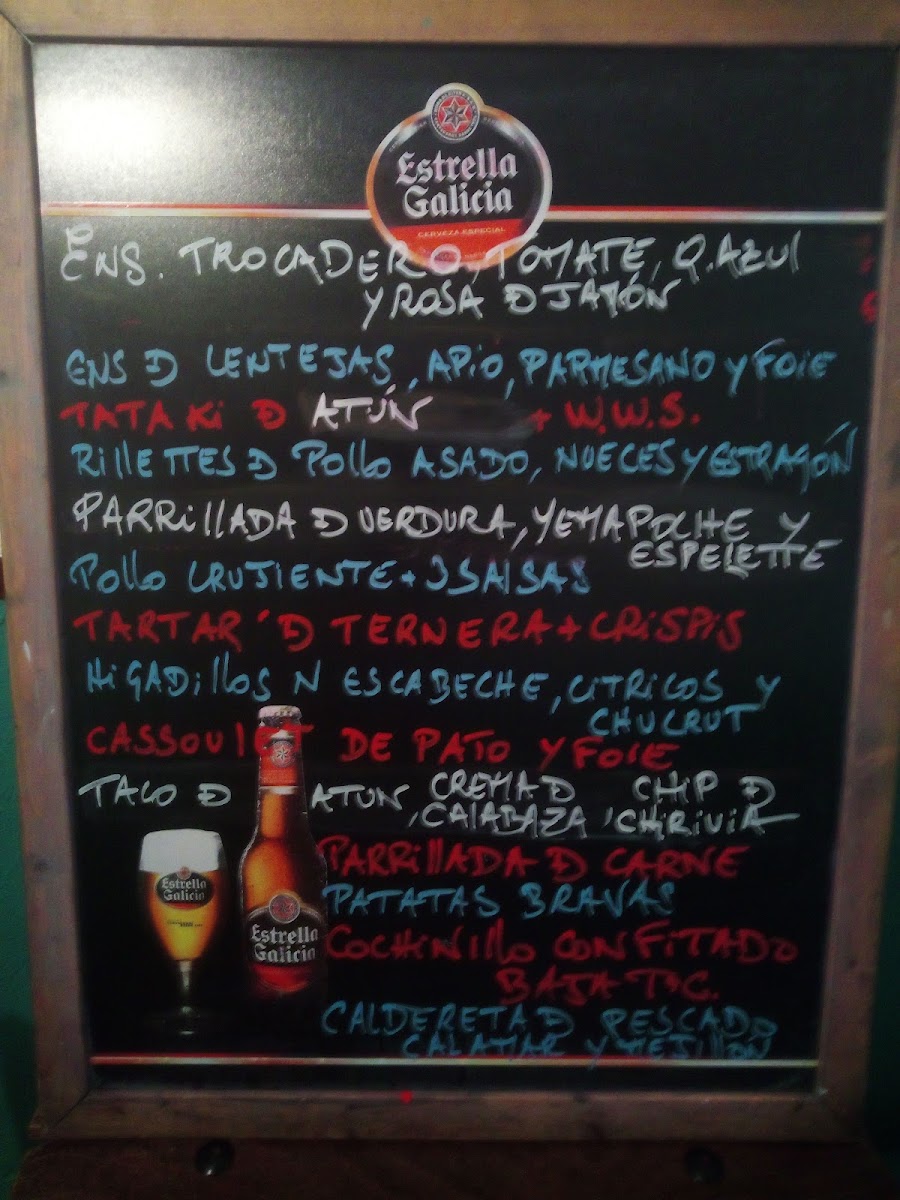 Estrella
Galicia
CERVEZA ESPECIAL
ENS. TROCADERO, TOMATE, Q. AZUL
Y ROSA D JAPÓN
ENS D LENTEJAS, APIO, PARMESANO Y FOIE
TATAKI D ATÚN + W.W.S.
RILLETTES D POLLO ASADO, NUECES Y ESTRAGÓN
PARRILLADA D VERDURA, YEMA POCHE Y
ESPELETTE
POLLO CRUJIENTE + 3 SALSAS
TARTAR D TERNERA + CRISPIS
HIGADILLOS N ESCABECHE, CITRICOS Y
CHUCRUT
CASSOULET DE PATO Y FOIE
TACO D ATUN, CREMA D CALABAZA, CHIP D CHIRIVIA
PARRILLADA D CARNE
PATATAS BRAVAS
COCHINILLO CONFITADO
BAJA Tª C.
CALDERETA D PESCADO
CALAMAR Y MEJILLON
Estrella
Galicia
Estrella
Galicia